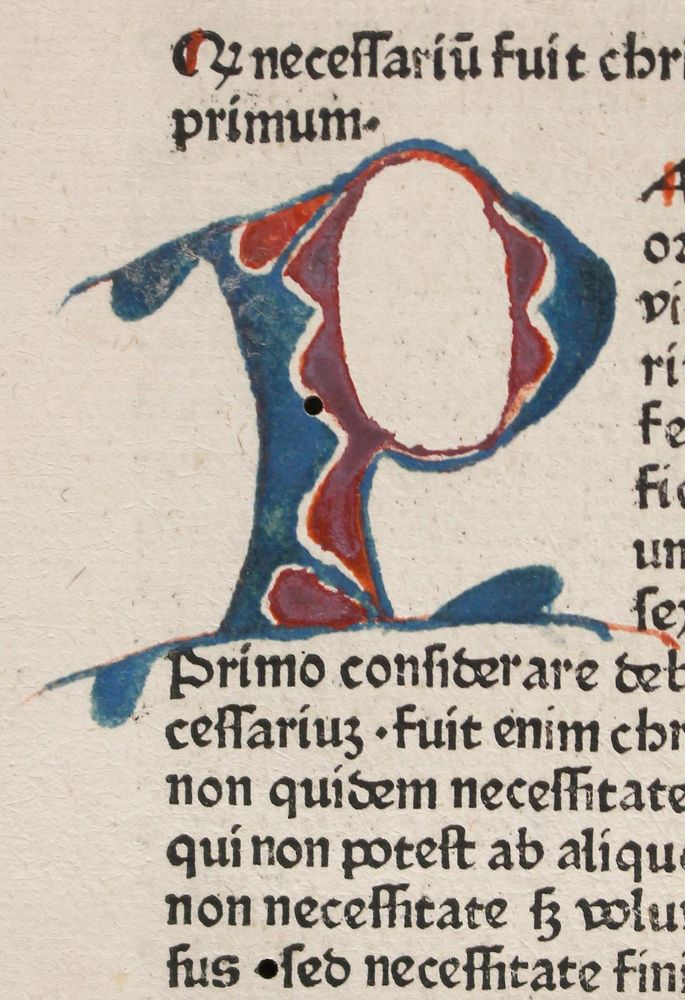 Qꝛ neceſſariū fuit chri
primum.
P
A
oꝛ
vi
ri
fe
fi
un
ſex
Primo conſiderare deb
ceſſariuꝫ .fuit enim chr
non quidem neceſſitate
qui non poteſt ab aliqu
non neceſſitate ſꝫ volu
ſus .ſed neceſſitate fini